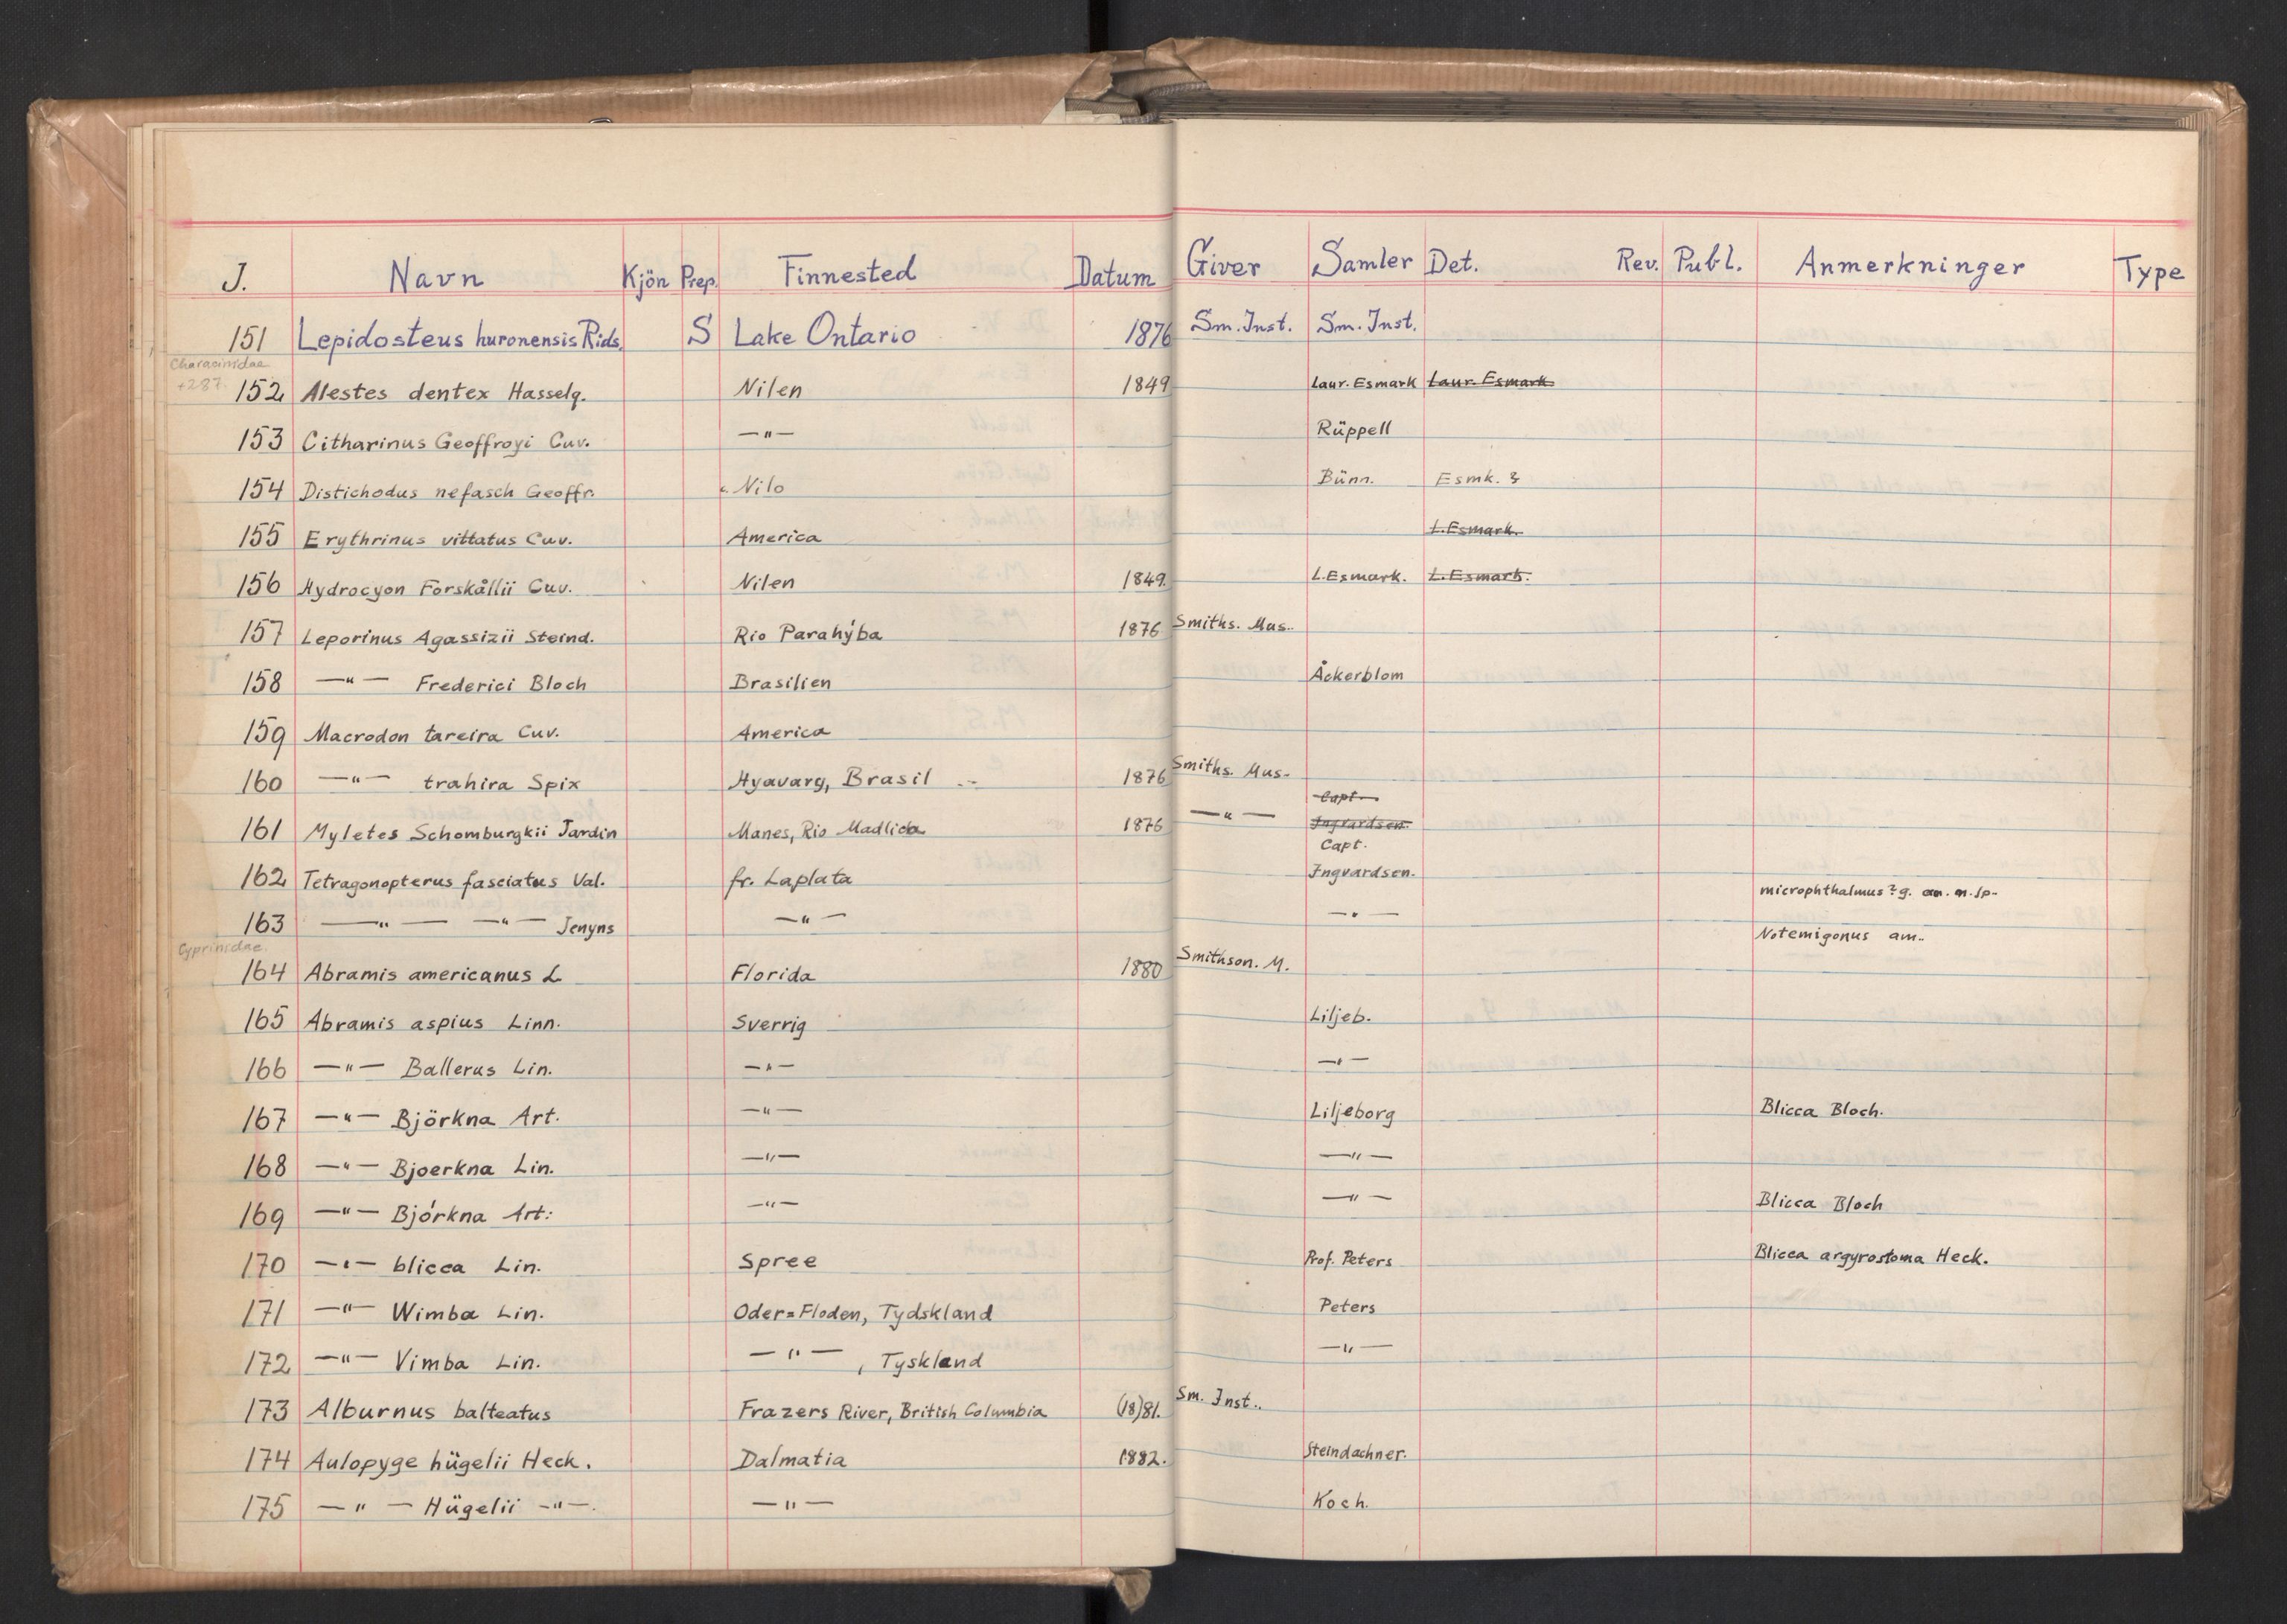 J. Navn Kjön Prep. Finnested Datum Giver Samler Det. Rev. Publ. Anmerkninger Type
151 Lepidosteus huronensis Rids. S Lake Ontario 1876 Sm. Inst. Sm. Inst.
Characinidae
+287. 152 Alestes dentex Hasselq. Nilen 1849 Laur. Esmark Laur. Esmark
153 Citharinus Geoffroyi Cuv. —"— Rüppell
154 Distichodus nefasch Geoffr. Nilo Bünn. Esmk. &
155 Erythrinus vittatus Cuv. America L. Esmark.
156 Hydrocyon Forskållii Cuv. Nilen 1849. L. Esmark. L. Esmark.
157 Leporinus Agassizii Steind. Rio Parahýba 1876 Smiths. Mus..
158 —"— Frederici Bloch Brasilien Åckerblom
159 Macrodon tareira Cuv. America
160 —"— trahira Spix Hyavarg, Brasil 1876 Smiths. Mus.
Capt.
161 Myletes Schomburgkii Jardin Manes, Rio Madlica 1876 —"— Ingvardsen.
Capt.
162 Tetragonopterus fasciatus Val. fr. Laplata Ingvardsen.
microphthalmus? g. an. n. sp.
163 —"— —"— Jenyns —"— —"—
Notemigonus am..
Cyprinidae.
164 Abramis americanus L Florida 1880 Smithson. M.
165 Abramis aspius Linn. Sverrig Liljeb.
166 —"— Ballerus Lin. —"— —"—
167 —"— Björkna Art. —"— Liljeborg Blicca Bloch.
168 —"— Bjoerkna Lin. —"— —"—
169 —"— Bjórkna Art: —"— —"— Blicca Bloch
170 —"— blicca Lin. Spree Prof. Peters Blicca argyrostoma Heck.
171 —"— Wimba Lin. Oder=Floden, Tydskland Peters
172 —"— Vimba Lin. —"—, Tyskland —"—
173 Alburnus balteatus Frazers River, British Columbia (18)81. Sm. Inst..
174 Aulopyge hügelii Heck. Dalmatia 1882. Steindachner.
175 —"— Hügelii —"—. —"— Koch.